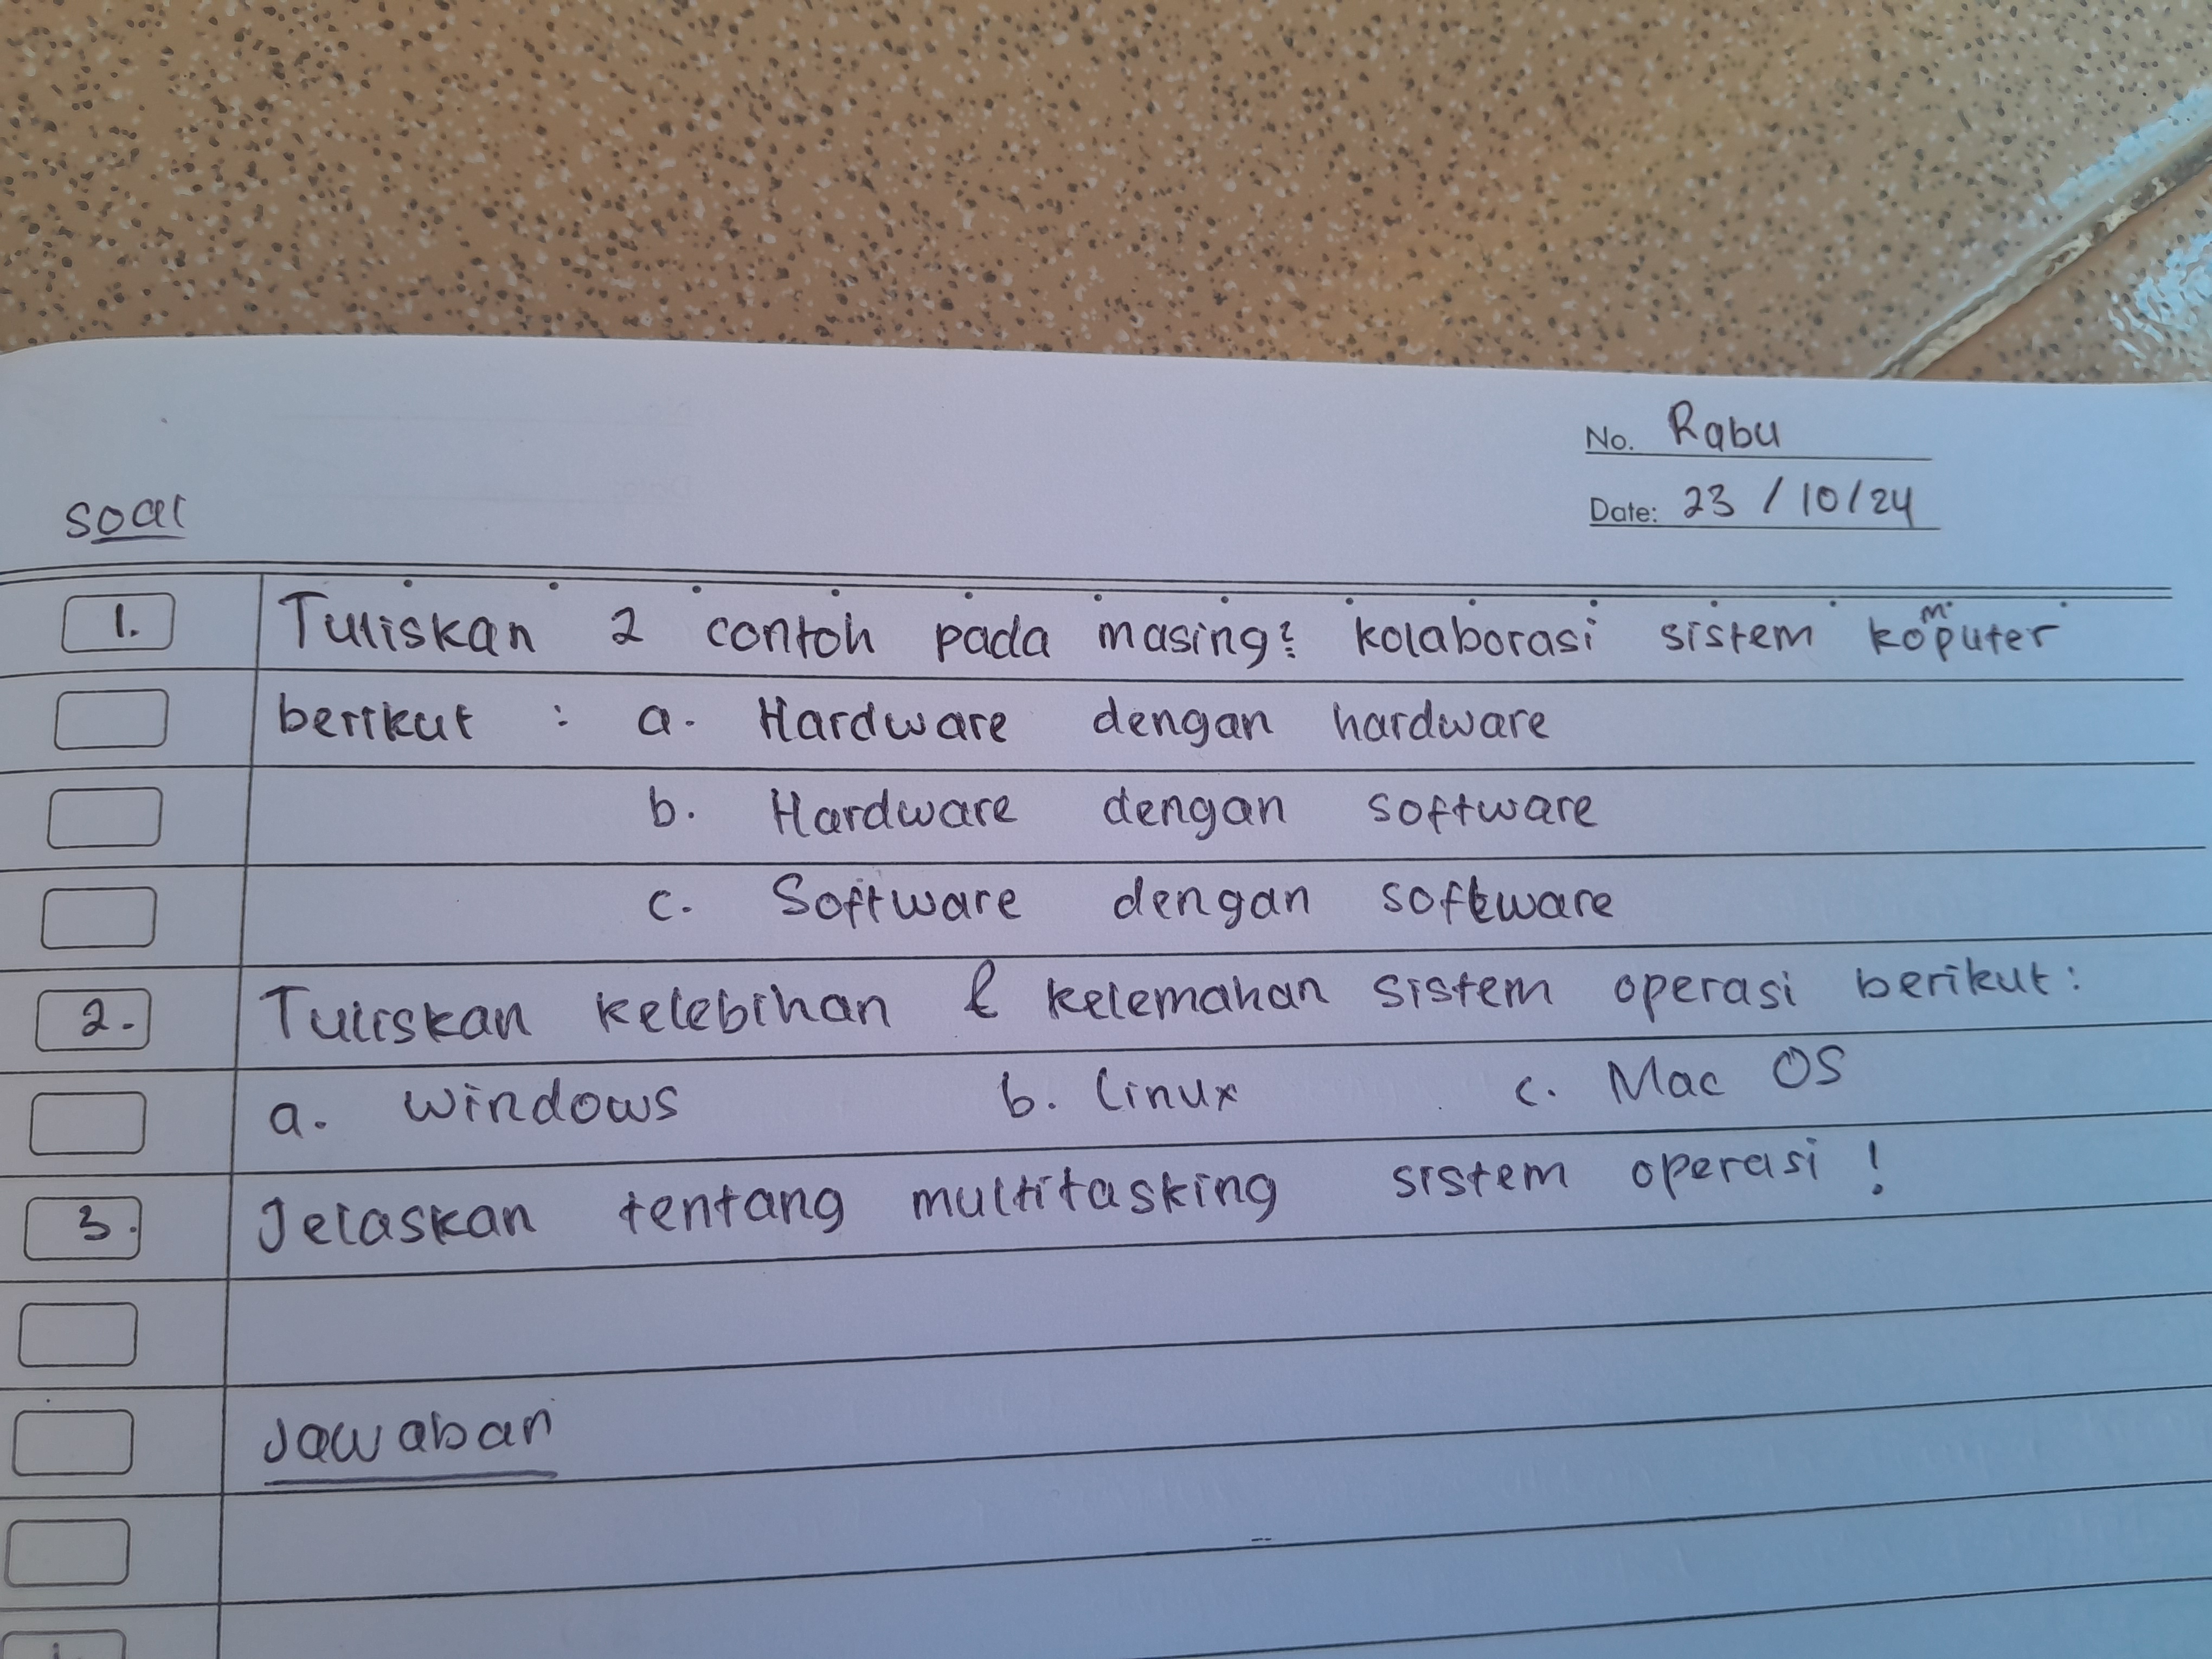 No. Rabu
Date: 23 / 10 / 24
Soal
1. Tuliskan 2 contoh pada masing² kolaborasi sistem komputer
berikut : a. Hardware dengan hardware
b. Hardware dengan software
c. Software dengan software
2. Tuliskan kelebihan & kelemahan sistem operasi berikut :
a. windows b. Linux c. Mac OS
3. Jelaskan tentang multitasking sistem operasi !
Jawaban